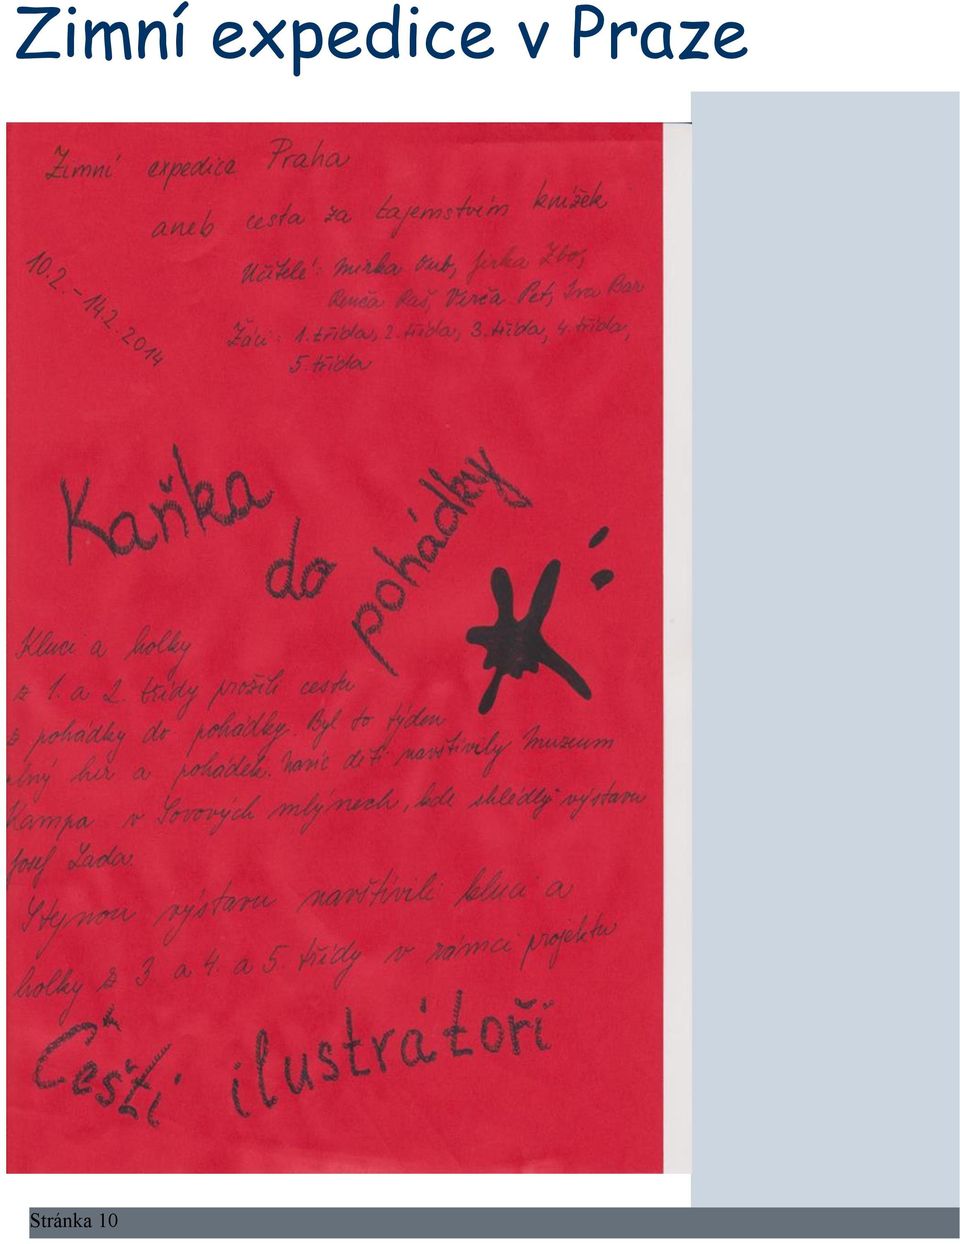 Zimní expedice v Praze
Zimní expedice Praha
aneb cesta za tajemstvím knížek
10.2. - 14.2. 2014
Učitelé: Mirka Oub, Jirka Zbo,
Renča Raš, Verča Pet, Iva Bar
Žáci: 1. třída, 2. třída, 3. třída, 4. třída,
5. třída
Kaňka
do
pohádky
Kluci a holky
z 1. a 2. třídy prožili cestu
z pohádky do pohádky. Byl to týden
plný her a pohádek. Navíc děti navštívily Muzeum
Kampa v Sovových mlýnech, kde shlédly výstavu
Josef Lada.
Stejnou výstavu navštívili kluci a
holky z 3. a 4. a 5. třídy v rámci projektu
Čeští ilustrátoři
Stránka 10